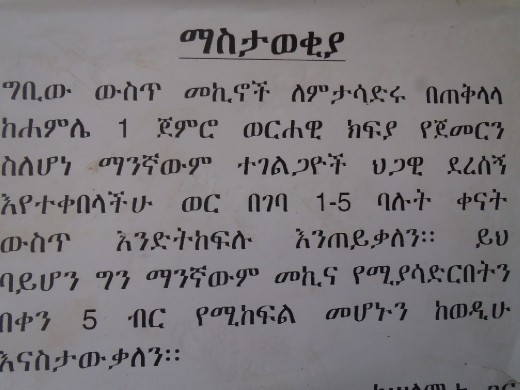 ማስታወቂያ
ግቢው ውስጥ መኪኖች ለምታሳድሩ በጠቅላላ
ከሐምሌ 1 ጀምሮ ወርሐዊ ክፍያ የጀመርን
ስለሆነ ማንኛውም ተገልጋዮች ህጋዊ ደረሰኝ
እየተቀበላችሁ ወር በገባ 1-5 ባሉት ቀናት
ውስጥ እንድትከፍሉ እንጠይቃለን፡፡ ይህ
ባይሆን ግን ማንኛውም መኪና የሚያሳድርበትን
በቀን 5 ብር የሚከፍል መሆኑን ከወዲሁ
እናስታውቃለን፡፡